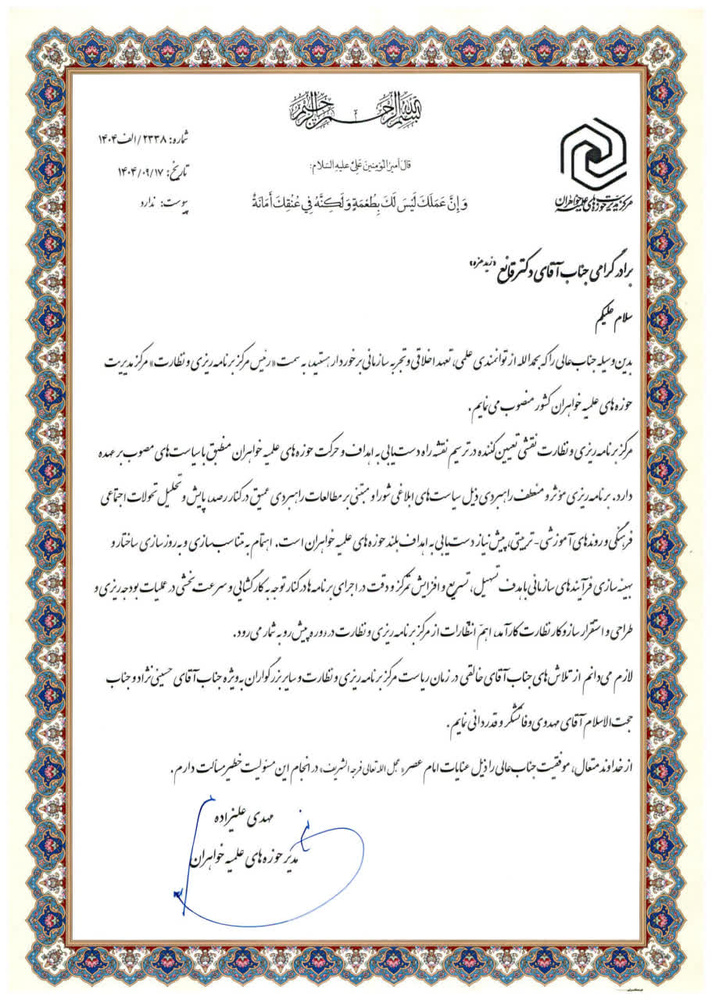 بسم الله الرحمن الرحیم
شماره: ۲۳۳۸/الف/۱۴۰۴
تاریخ: ۱۴۰۴/۰۹/۱۷
پیوست: ندارد
قالَ أمیرُالمؤمِنینَ عَلیٌّ عَلَیهِ السَّلام:
وَ إِنَّ عَمَلَكَ لَيْسَ لَكَ بِطُعْمَةٍ وَ لَكِنَّهُ فِي عُنُقِكَ أَمَانَةٌ
مرکز مدیریت حوزه‌های علمیه خواهران
برادر گرامی جناب آقای دکتر قانع «زید عزه»
سلام علیکم
بدین وسیله جناب عالی را که بحمدالله از توانمندی علمی، تعهد اخلاقی و تجربه سازمانی برخوردار هستید، به سمت «رئیس مرکز برنامه ریزی و نظارت» مرکز مدیریت
حوزه های علمیه خواهران کشور منصوب می نمایم.
مرکز برنامه ریزی و نظارت نقشی تعیین کننده در ترسیم نقشه راه دست یابی به اهداف و حرکت حوزه های علمیه خواهران منطبق با سیاست های مصوب بر عهده
دارد. برنامه ریزی مؤثر و منعطف راهبردی ذیل سیاست های ابلاغی شورا و مبتنی بر مطالعات راهبردی عمیق در کنار رصد، پایش و تحلیل تحولات اجتماعی
فرهنگی و روندهای آموزشی- تربیتی، پیش نیاز دست یابی به اهداف بلند حوزه های علمیه خواهران است. اهتمام به متناسب سازی و به روز سازی ساختار و
بهینه سازی فرآیندهای سازمانی با هدف تسهیل، تسریع و افزایش تمرکز و دقت در اجرای برنامه ها در کنار توجه به کارگشایی و سرعت بخشی در عملیات بودجه ریزی و
طراحی و استقرار ساز و کار نظارت کارآمد، اهمّ انتظارات از مرکز برنامه ریزی و نظارت در دوره پیش رو به شمار می رود.
لازم می دانم از تلاش های جناب آقای خالقی در زمان ریاست مرکز برنامه ریزی و نظارت و سایر بزرگواران به ویژه جناب آقای حسینی نژاد و جناب
حجت الاسلام آقای مهدوی وفا تشکر و قدردانی نمایم.
از خداوند متعال، موفقیت جناب عالی را ذیل عنایات امام عصر «عجل الله تعالی فرجه الشریف»، در انجام این مسئولیت خطیر مسألت دارم.
مهدی علیزاده
مدیر حوزه های علمیه خواهران